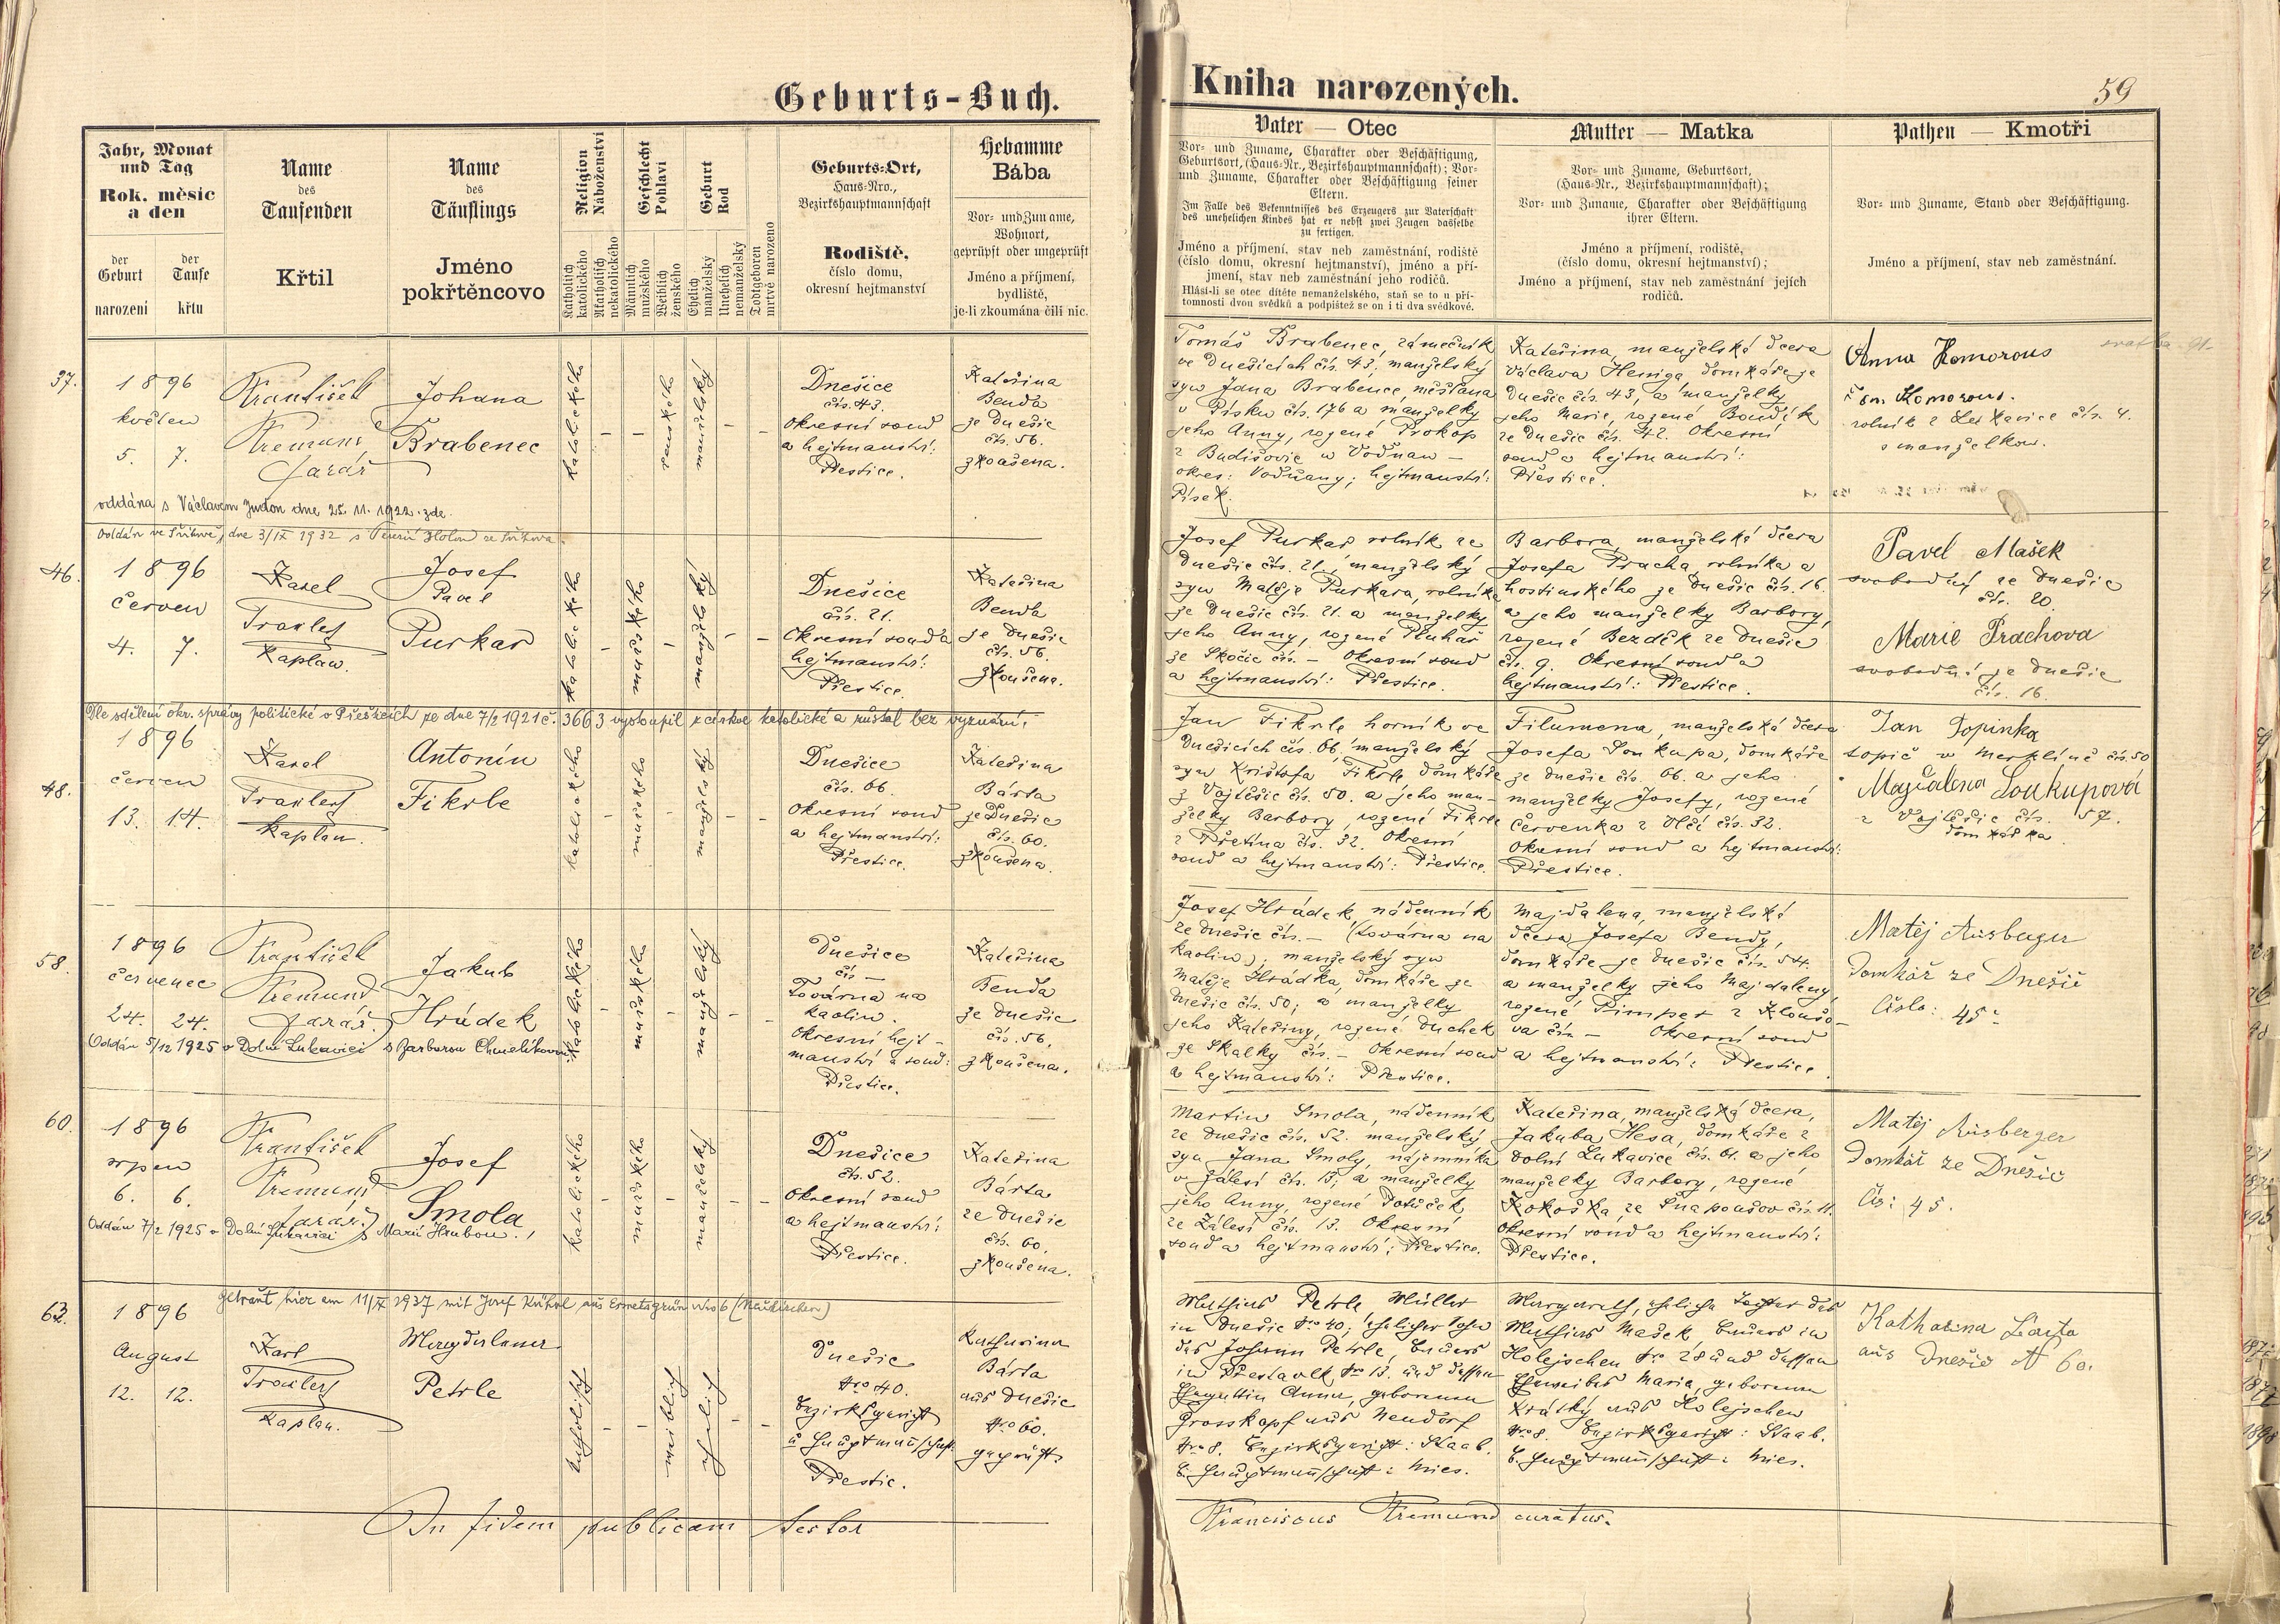 Geburts-Buch.
Kniha narozených.
59
Jahr, Monat
und Tag
Rok, měsíc
a den
der
Geburt
narození
der
Taufe
křtu
Name
des
Taufenden
Křtil
Name
des
Täuflings
Jméno
pokřtěncovo
Religion
Náboženství
Katholisch
katolického
Akatholisch
nekatolického
Geschlecht
Pohlaví
Männlich
mužského
Weiblich
ženského
Geburt
Rod
Ehelich
manželský
Unehelich
nemanželský
Todtgeboren
mrtvě narozeno
Geburts-Ort,
Haus-Nro.,
Bezirkshauptmannschaft
Rodiště,
číslo domu,
okresní hejtmanství
Hebamme
Bába
Vor- und Zuname,
Wohnort,
geprüpft oder ungeprüft
Jméno a příjmení,
bydliště,
je-li zkoumána čili nic.
Vater — Otec
Vor- und Zuname, Charakter oder Beschäftigung,
Geburtsort, (Haus-Nr., Bezirkshauptmannschaft); Vor-
und Zuname, Charakter oder Beschäftigung seiner
Eltern.
Im Falle des Bekenntnisses des Erzeugers zur Vaterschaft
des unehelichen Kindes hat er nebst zwei Zeugen dasselbe
zu fertigen.
Jméno a příjmení, stav neb zaměstnání, rodiště
(číslo domu, okresní hejtmanství), jméno a pří-
jmení, stav neb zaměstnání jeho rodičů.
Hlásí-li se otec dítěte nemanželského, staň se to u pří-
tomnosti dvou svědků a podpištež se on i ti dva svědkové.
Mutter — Matka
Vor- und Zuname, Geburtsort,
(Haus-Nr., Bezirkshauptmannschaft);
Vor- und Zuname, Charakter oder Beschäftigung
ihrer Eltern.
Jméno a příjmení, rodiště,
(číslo domu, okresní hejtmanství);
Jméno a příjmení, stav neb zaměstnání jejich
rodičů.
Pathen — Kmotři
Vor- und Zuname, Stand oder Beschäftigung.
Jméno a příjmení, stav neb zaměstnání.
37.
1896
květen
5. 7.
František
Kremund
farář
Johana
Brabenec
katolického
ženského
manželský
Dnešice
čís. 43.
Okresní soud
a hejtmanství:
Přestice.
Kateřina
Benda
ze Dnešic
čís. 56.
zkoušena.
Tomáš Brabenec, zámečník
ve Dnešicích čís. 43, manželský
syn Jana Brabence, měšťana
v Písku čís. 176 a manželky
jeho Anny, rozené Prokop
z Budišovic u Vodňan —
okres: Vodňany; hejtmanství:
Písek.
Kateřina, manželská dcera
Václava Heniga domkáře ze
Dnešic čís. 43, a manželky
jeho Marie, rozené Boudík
ze Dnešic čís. 42. Okresní
soud a hejtmanství:
Přestice.
Anna Komorous
Komorous.
rolník z Lukavice čís. 4.
s manželkou.
oddána s Václavem dne 25. 11. 1922. zde.
Oddán ve dne 3/IX 1932 s
46.
1896
červen
4. 7.
Karel
Traxler
kaplan.
Josef
Pavel
Purkar
katolického
mužského
manželský
Dnešice
čís. 21.
Okresní soud a
hejtmanství:
Přestice.
Kateřina
Benda
ze Dnešic
čís. 56.
zkoušena.
Josef Purkar rolník ze
Dnešic čís. 21., manželský
syn Matěje Purkara, rolníka
ze Dnešic čís. 21. a manželky
jeho Anny, rozené Pluhař
ze Skočic čís. – Okresní soud
a hejtmanství: Přestice.
Barbora, manželská dcera
Josefa Pracha, rolníka a
hostinského ze Dnešic čís. 16.
a jeho manželky Barbory,
rozené Bezděk ze Dnešic
čís. 9. Okresní soud a
hejtmanství: Přestice.
Pavel Mašek
svobodný ze Dnešic
čís. 20.
Marie Prachova
svobodná ze Dnešic
čís. 16.
Dle sdělení okr. správy politické v Přešticích ze dne 7/2 1921 č. 3663 vystoupil z církve katolické a zůstal bez vyznání.
48.
1896
červen
13. 14.
Karel
Traxler
kaplan.
Antonín
Fikrle
katolického
mužského
manželský
Dnešice
čís. 66.
Okresní soud
a hejtmanství:
Přestice.
Kateřina
Bárta
ze Dnešic
čís. 60.
zkoušena.
Jan Fikrle horník ve
Dnešicích čís. 66, manželský
syn Krištofa Fikrle domkáře
z Vojtěšic čís. 50. a jeho man-
želky Barbory, rozené Fikrle
z Přetína čís. 32. Okresní
soud a hejtmanství: Přestice.
Filumena, manželská dcera
Josefa Soukupa, domkáře
ze Dnešic čís. 66. a jeho
manželky Josefy, rozené
Červenka z Vlčí čís. 32.
Okresní soud a hejtmanství:
Přestice.
Jan Topinka
topič v Merklíně čís. 50
Magdalena Soukupová
z Vojtěšic čís. 57.
domkářka
58.
1896
červenec
24. 24.
František
Kremund
farář
Jakub
Hrádek
katolického
mužského
manželský
Dnešice
čís —
Továrna na
kaolin.
Okresní hejt-
manství a soud:
Přestice.
Kateřina
Benda
ze Dnešic
čís. 56.
zkoušena.
Josef Hrádek, nádenník
ze Dnešic čís. – (továrna na
kaolin); manželský syn
Matěje Hrádka, domkáře ze
Dnešic čís. 50; a manželky
jeho Kateřiny, rozené Duchek
ze Skalky čís. – Okresní soud
a hejtmanství: Přestice.
Majdalena, manželská
dcera Josefa Bendy,
domkáře ze Dnešic čís. 54.
a manželky jeho Majdaleny,
rozené Pimper z Kloušo-
va čís. – Okresní soud
a hejtmanství: Přestice.
Matěj Ausberger
domkář ze Dnešic
číslo: 45
Oddán 5/12 1925 v Dolní Lukavici s Barborou Chmelíkovou.
60.
1896
srpen
6. 6.
František
Kremund
farář
Josef
Smola
katolického
mužského
manželský
Dnešice
čís. 52.
Okresní soud
a hejtmanství:
Přestice.
Kateřina
Bárta
ze Dnešic
čís. 60.
zkoušena.
Martin Smola, nádenník
ze Dnešic čís. 52. manželský
syn Jana Smoly, nájemníka
v Zálesí čís. 13, a manželky
jeho Anny, rozené Potůček
ze Zálesí čís. 13. Okresní
soud a hejtmanství: Přestice.
Kateřina, manželská dcera,
Jakuba Hesa, domkáře z
Dolní Lukavice čís. 61. a jeho
manželky Barbory, rozené
Kokoška, ze Snapoušov čís. 11.
Okresní soud a hejtmanství:
Přestice.
Matěj Ausberger
domkář ze Dnešic
čís: 45.
Oddán 7/2 1925 v Dolní Lukavici s Marií Hrubou.
getraut hier am 11/IX 1937 mit Josef Kühnl, aus Ermetsgrün Nro 6
63.
1896
August
12. 12.
Karl
Traxler
Kaplan.
Magdalena
Petrle
katholisch
weiblich
ehelich
Dnešic
Nro 40.
Bezirksgericht
u. Hauptmannschaft
Přestic.
Katharina
Bárta
aus Dnešic
Nro 60.
geprüft.
Mathias Petrle, Müller
in Dnešic Nro 40; ehelicher Sohn
des Johann Petrle, Bauers
in Přestavlk Nr. 13. und dessen
Ehegattin Anna, geborenen
Grosskopf aus Neudorf
Nro 8. Bezirksgericht: Staab.
B. Hauptmannschaft: Mies.
Margareth, eheliche Tochter des
Mathias Mašek, Bauers in
Holejschen Nr. 28 und dessen
Eheweibes Maria, geborenen
Krátký aus Holejschen
Nro 8. Bezirksgericht: Staab.
B. Hauptmannschaft: Mies.
Katharina Barta
aus Dnešic N 60.
In fidem publicam testor
Franciscus Kremund curatus.